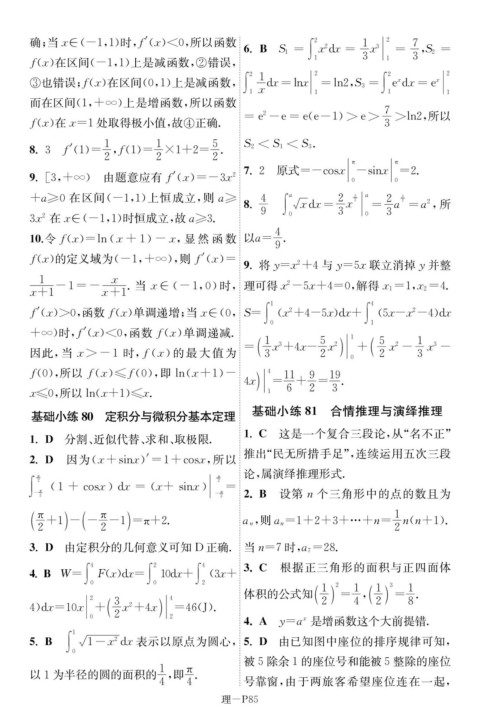 确;当x∈(-1,1)时,f′(x)<0,所以函数
f(x)在区间(-1,1)上是减函数,②错误,
③也错误;f(x)在区间(0,1)上是减函数,
而在区间(1,+∞)上是增函数,所以函数
f(x)在x=1处取得极小值,故④正确.
8. 3 f′(1)=1/2,f(1)=1/2×1+2=5/2.
9. [3,+∞) 由题意应有 f′(x)=-3x²
+a≥0在区间(-1,1)上恒成立,则 a≥
3x²在x∈(-1,1)时恒成立,故a≥3.
10.令 f(x)=ln(x+1)-x,显然函数
f(x)的定义域为(-1,+∞),则 f′(x)=
1/(x+1)-1=-x/(x+1). 当x∈(-1,0)时,
f′(x)>0,函数f(x)单调递增;当x∈(0,
+∞)时,f′(x)<0,函数f(x)单调递减.
因此,当x>-1时,f(x)的最大值为
f(0),所以f(x)≤f(0),即ln(x+1)-
x≤0,所以ln(x+1)≤x.
基础小练80 定积分与微积分基本定理
1. D 分割、近似代替、求和、取极限.
2. D 因为(x+sinx)′=1+cosx,所以
∫_{-π/2}^{π/2}(1+cosx)dx=(x+sinx)|_{-π/2}^{π/2}=
(π/2+1)-(-π/2-1)=π+2.
3. D 由定积分的几何意义可知D正确.
4. B W=∫_0^4 F(x)dx=∫_0^2 10dx+∫_2^4(3x+
4)dx=10x|_0^2+(3/2x²+4x)|_2^4=46(J).
5. B ∫_0^1 √(1-x²)dx表示以原点为圆心,
以1为半径的圆的面积的1/4,即π/4.
6. B S₁=∫_1^2 x²dx=1/3x³|_1^2=7/3,S₂=
∫_1^2 1/x dx=lnx|_1^2=ln2,S₃=∫_1^2 eˣdx=eˣ|_1^2
=e²-e=e(e-1)>e>7/3>ln2,所以
S₂<S₁<S₃.
7. 2 原式=-cosx|_0^π-sinx|_0^π=2.
8. 4/9 ∫_0^a √x dx=2/3x^{3/2}|_0^a=2/3a^{3/2}=a²,所
以a=4/9.
9. 将y=x²+4与y=5x联立消掉y并整
理可得x²-5x+4=0,解得x₁=1,x₂=4.
S=∫_0^1(x²+4-5x)dx+∫_1^4(5x-x²-4)dx
=(1/3x³+4x-5/2x²)|_0^1+(5/2x²-1/3x³-
4x)|_1^4=11/6+9/2=19/3.
基础小练81 合情推理与演绎推理
1. C 这是一个复合三段论,从“名不正”
推出“民无所措手足”,连续运用五次三段
论,属演绎推理形式.
2. B 设第n个三角形中的点的数且为
aₙ,则aₙ=1+2+3+…+n=1/2n(n+1).
当n=7时,a₇=28.
3. C 根据正三角形的面积与正四面体
体积的公式知(1/2)²=1/4,(1/2)³=1/8.
4. A y=aˣ是增函数这个大前提错.
5. D 由已知图中座位的排序规律可知,
被5除余1的座位号和能被5整除的座位
号靠窗,由于两旅客希望座位连在一起,
理-P85